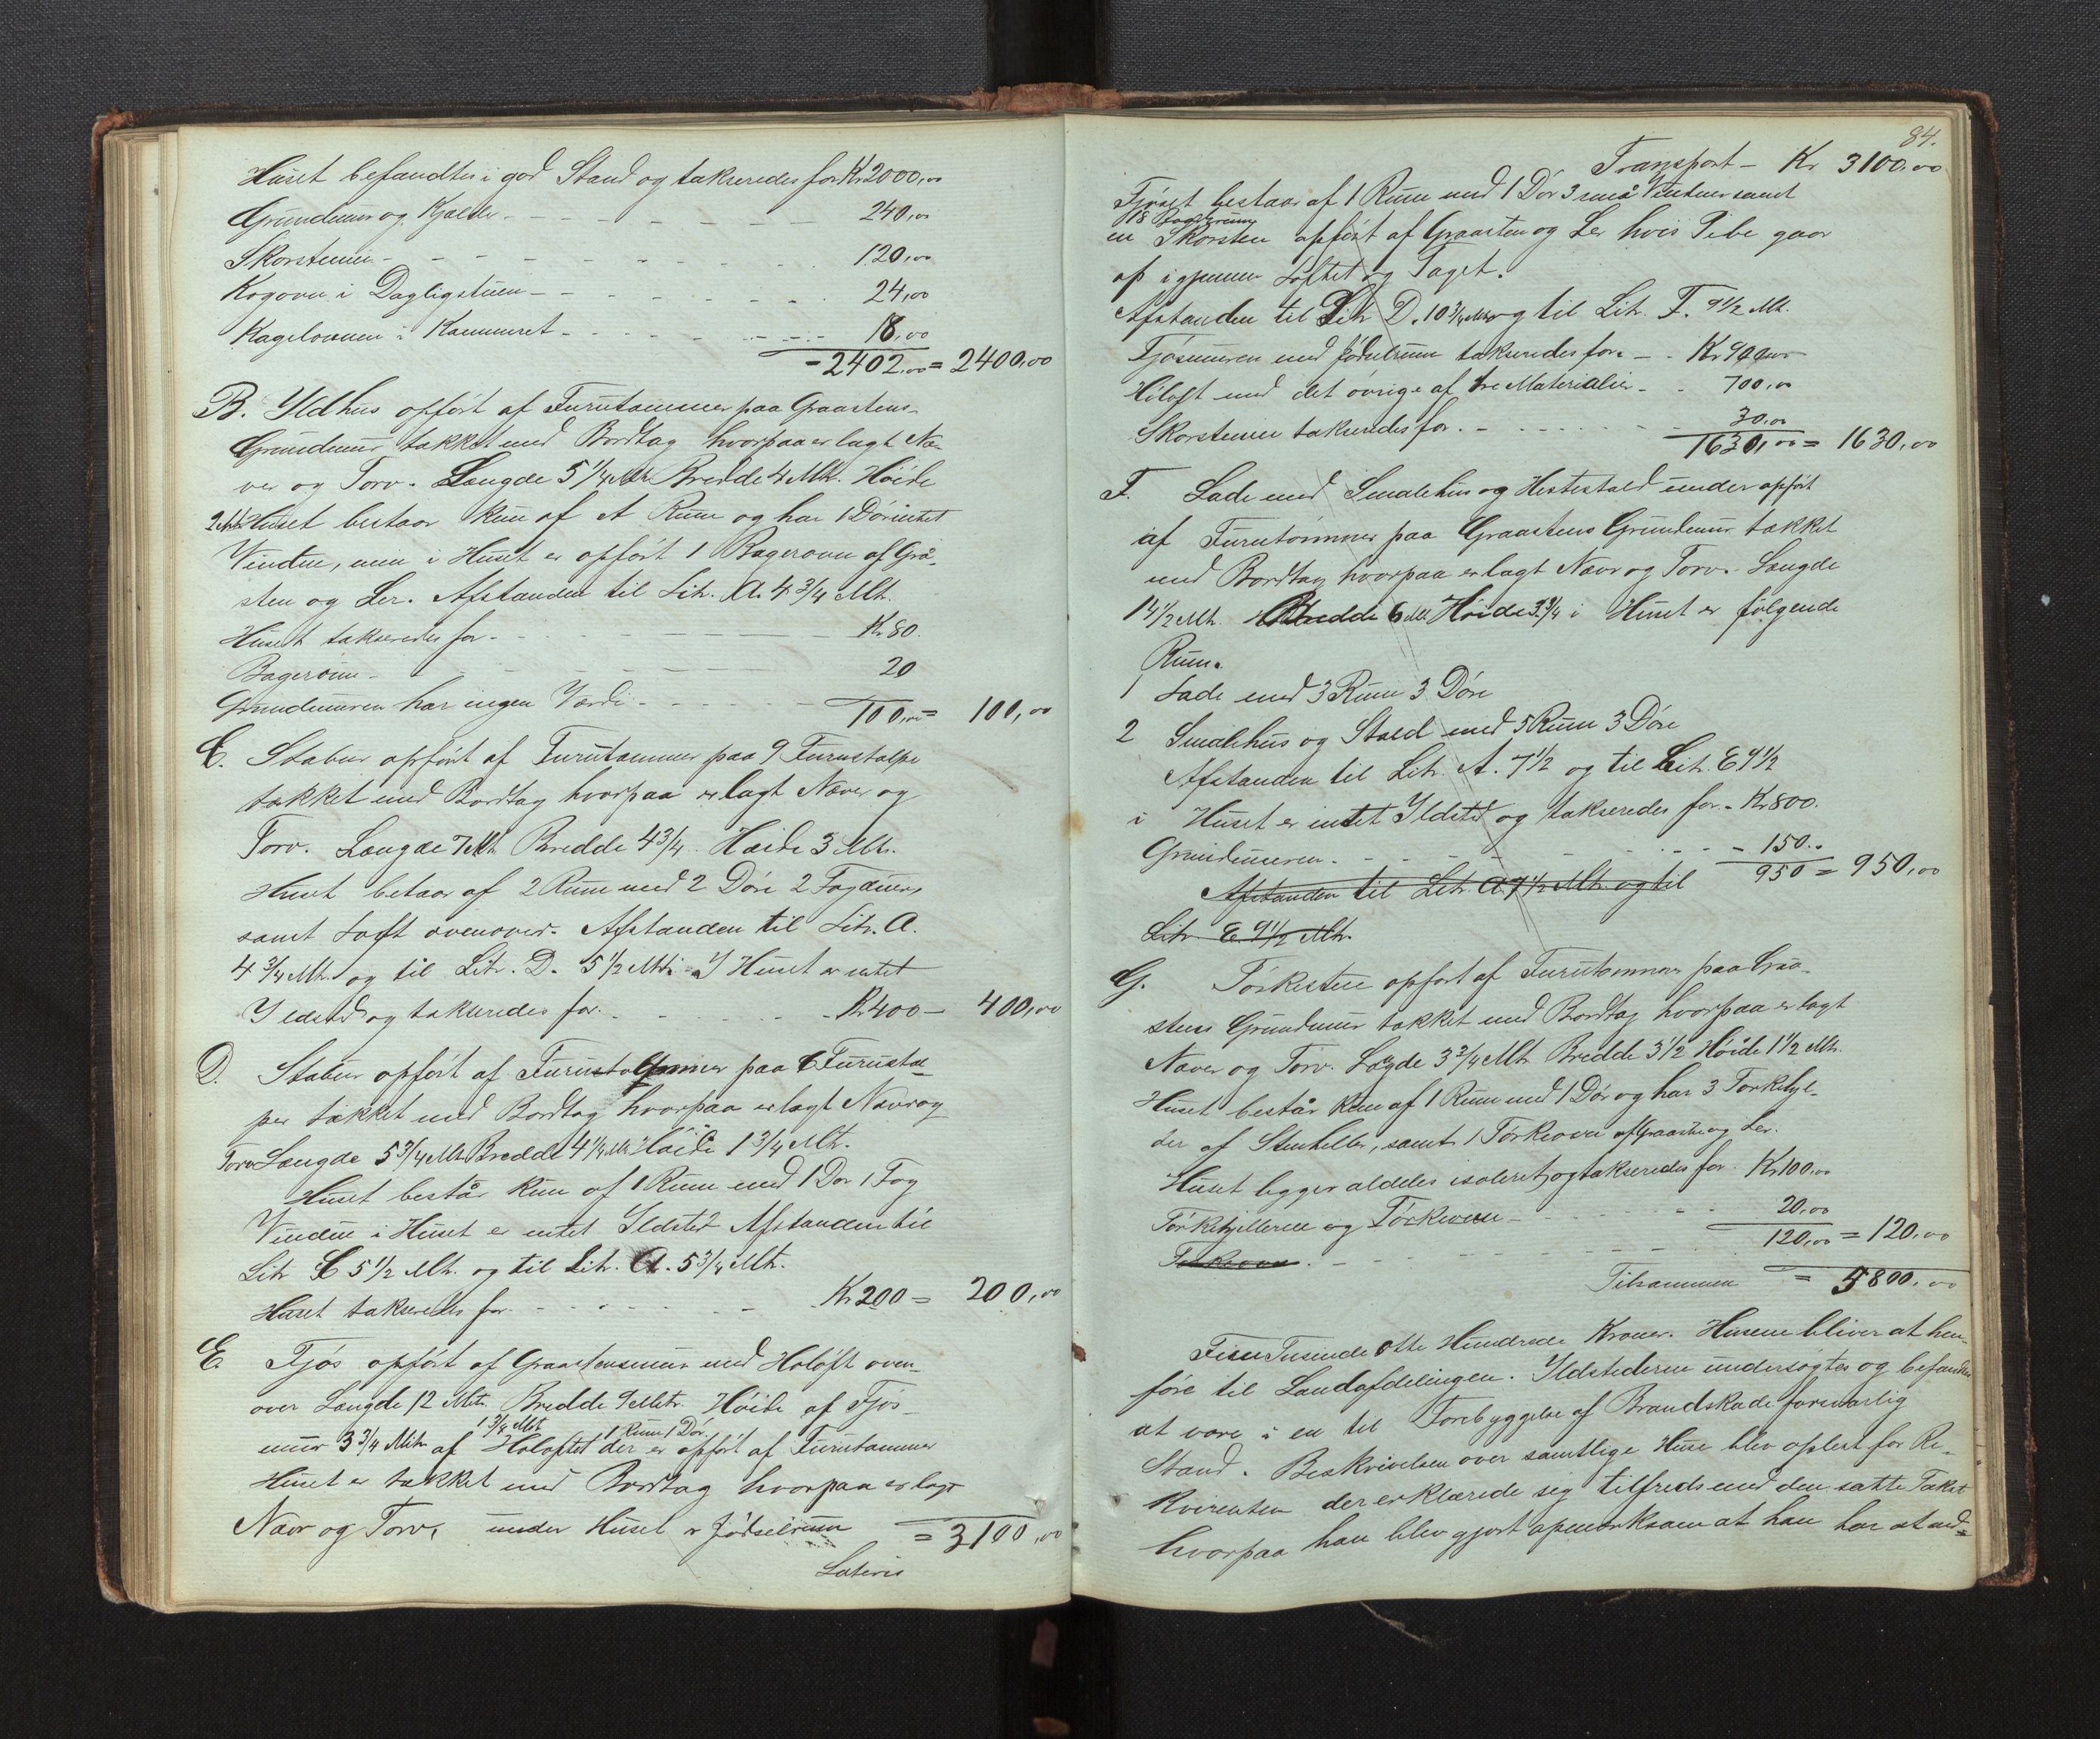 Huset befandtes i god Stand og takseredes for Kr 2000,00
Grundmur og Kjelder - 240,00
Skorstenen - 120,00
Kogovn i Dagligstuen - 24,00
Kagelovnen i Kammeret - 18,00
- 2402,00 = 2400,00
B. Ildhus opført af Furutømmer paa Graastens
Grundmur takket med Bordtag hvorpaa er lagt Næ-
ver og Torv. Længde 5 1/4 Mtr Bredde 4 Mtr. Høide
2 Mtr Huset bestaar kun af et Rum og har 1 Dør intet
Vindue, men i Huset er opført 1 Bagerovn af Grå-
sten og Ler. Afstanden til Litr. A. 4 3/4 Mtr.
Huset takseredes for - Kr 80.
Bagerovn - 20
Grundmuren har ingen Værdi - 100,00 = 100,00
C. Stabur opført af Furutømmer paa 9 Furustolpe
takket med Bordtag hvorpaa er lagt Næver og
Torv. Længde 7 Mtr. Bredde 4 3/4. Høide 3 Mtr.
Huset betaar af 2 Rum med 2 Døre 2 Fag
samt Loft ovenover. Afstanden til Litr. A.
4 3/4 Mtr. og til Litr. D. 5 1/2 Mtr. I Huset er intet
Ildsted og takseredes for. - Kr 400 - 400,00
D. Stabur opført af Furutømmer paa 6 Furustol-
per takket med Bordtag hvorpaa er lagt Næver og
Torv Længde 5 3/4 Mtr Bredde 4 1/4 Mtr Høide 1 3/4 Mtr.
Huset består kun af 1 Rum med 1 Dør 1 Fag
Vindue i Huset er intet Ildsted Afstanden til
Litr C 5 1/2 Mtr. og til Litr. A. 5 3/4 Mtr.
Huset takseredes for - Kr 200 = 200,00
E Fjøs opført af Graastensmur med Høloft oven-
over Længde 12 Mtr. Bredde 9 Mtr. Høide af Fjøs-
1 3/4 Mtr. 1 Rum 1 Dør.
mur 3 3/4 Mtr af Høloftet der er opført af Furutømmer
Huset er takket med Bordtag hvorpaa er lagt
Næver og Torv, under Huset er Jødselrum = 3100,00
Lateris
84.
Transport - Kr 3100,00
Fjøset bestaar af 1 Rum med 1 Dør 3 små Vinduer samt
en Skorsten opført af Graasten og Ler hvis Pibe gaar
op igjennem Loftet og Taget.
Afstanden til Litr D. 10 3/4 Mtr og til Litr. F. 9 1/2 Mtr.
Fjøsmuren med Jødselrum takseredes for. - Kr 900,00
Høloft med det øvrige af træ Materialier - 700,00
Skorstenen takseredes for. - 30,00
1630,00 = 1630,00
F. Lade med Smalehus og Hestestald under opført
af Furutømmer paa Graastens Grundmur takket
med Bordtag hvorpaa er lagt Næver og Torv. Længde
14 1/2 Mtr. Bredde 6 Mtr Høide 3 3/4 i Huset er følgende
Rum.
1 Lade med 3 Rum 3 Døre
2 Smalehus og Stald med 5 Rum 3 Døre
Afstanden til Litr. A. 7 1/2 og til Litr. E 9 1/2
i Huset er intet Ildsted og takseredes for - Kr 800.
Grundmuren - 150..
950 = 950,00
Afstanden til Litr. A 7 1/2 Mtr. og til
Litr. E 9 1/2 Mtr.
G. Tørkestue opført af Furutømmer paa Graa-
stens Grundmur takket med Bordtag hvorpaa er lagt
Næver og Torv. Lægde 3 3/4 Mtr Bredde 3 1/2 Høide 1 1/2 Mtr.
Huset består kun af 1 Rum med 1 Dør og har 3 Tørkehjel-
der af Stenheller, samt 1 Tørkeovn af Graasten og Ler.
Huset ligger aldeles isoleret og takseredes for. Kr 100,00
Tørkehjellerne og Tørkeovn - 20,00
120,00 = 120,00
Tørkeovn. -
Tilsammen = 5800,00
Fem Tusende Otte Hundrede Kroner. Husene bliver at hen-
føre til Landafdelingen. Ildstederne undersøgtes og befandtes
at være i en til Forebyggelse af Brandskade forsvarlig
Stand. Beskrivelsen over samtlige Huse blev oplæst for Re-
kvirenten der erklærede sig tilfreds med den satte Takst
hvorpaa han blev gjort opmærksom at han har at